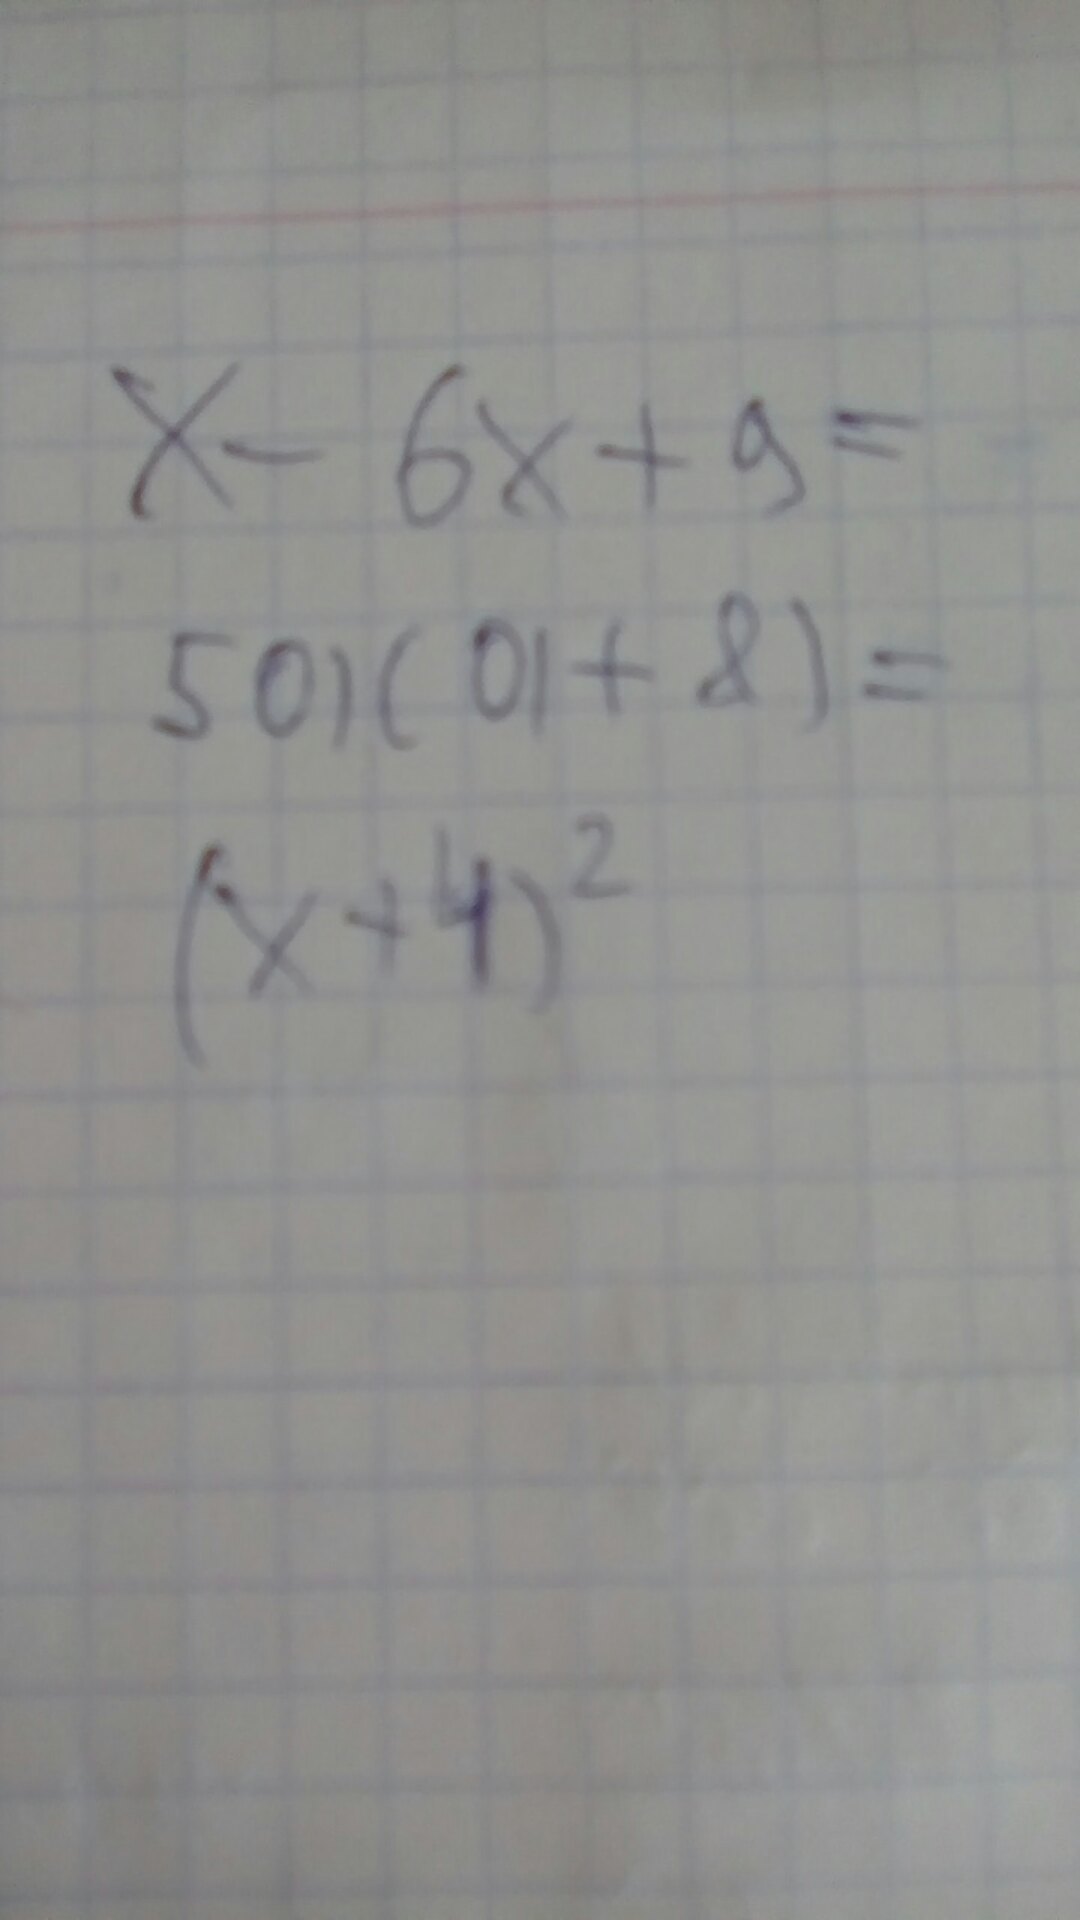 x - 6x + 9 =
5a(a + 8) =
(x + 4)²